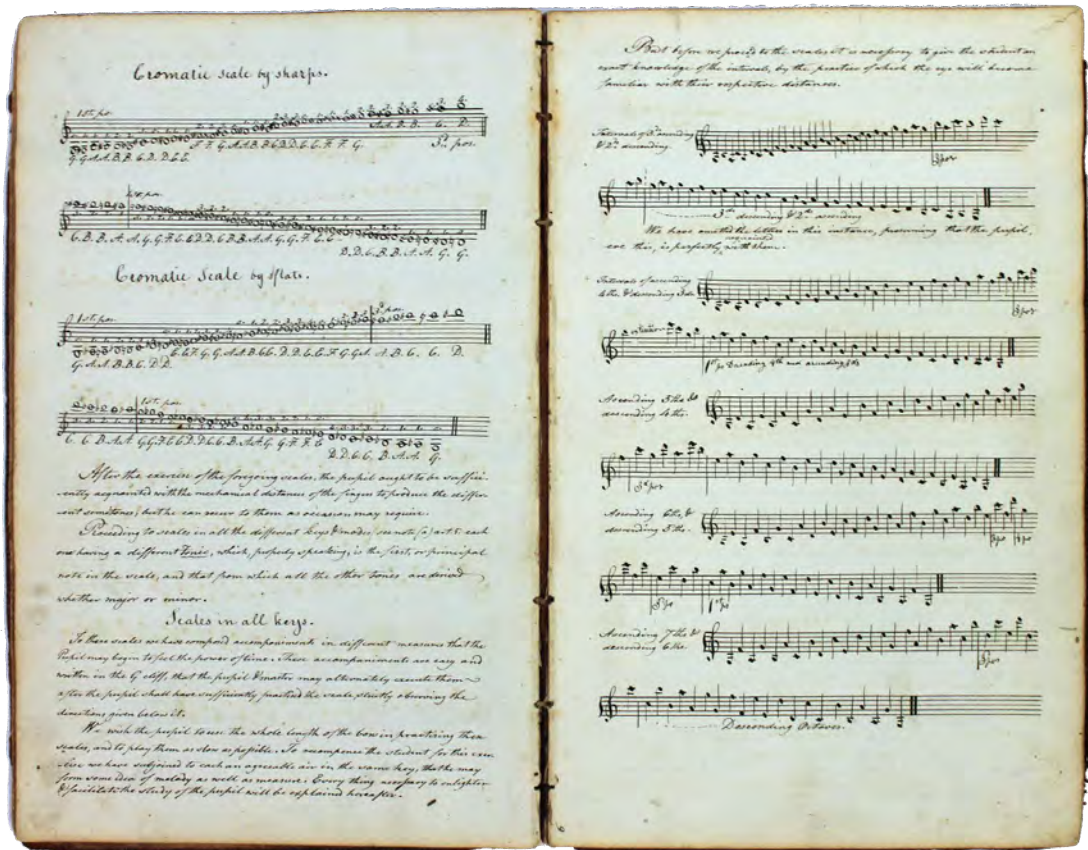 Cromatic Scale by sharps.
1st. po.
A.A.B.B. C. D.
F. F. G. A.A.B.B.C.D.D.E.E.F. F. G.
3d. por.
G.G.A.A.B.B. C.D. D.E.E.
1st. po.
C.B.B.A.A.G.G.F.E.E.D.D.C.B.B.A.A.G.G.F.E.E
D.D.C.B.B.A.A. G. G.
Cromatic Scale by flats.
1st. po.
E.E.F.G.G.A.A.B.C.C.D.D.E.E.F.G.G.A. A.B.C. C. D.
G.A.A.B.B.C. D.D.
1st. po.
C. C. B.A.A. G.G.F.E.E.D.D.C.C.B.A.A.G. G.F.F.E
D.D.C.C. B.A.A. G.
After the exercise of the foregoing scales, the pupil ought to be suffici-
-ently acquainted with the mechanical distances of the fingers to produce the differ-
-ent semitones, but he can recur to them as occasion may require.
Proceding to scales in all the different keys & modes, see note (a) art 5. each
one having a different Tonic, which, properly speaking, is the first, or principal
note in the scale, and that from which all the other tones are derived
whether major or minor.
Scales in all keys.
To these scales we have composed accompaniments in different measures that the
Pupil may begin to feel the power of time. These accompaniments are easy and
written in the G cliff, that the pupil & master may alternately execute them
after the pupil shall have sufficiently practised the scale, strictly observing the
directions given below it.
We wish the pupil to use the whole length of the bow in practising these
scales, and to play them as slow as possible. To recompence the student for this exer-
-cise we have subjoined to each an agreeable air in the same key, that he may
form some idea of melody as well as measure. Every thing necessary to enlighten
& facilitate the study of the pupil will be explained hereafter.
But before we procede to the scales it is necessary to give the student an
exact knowledge of the intervals, by the practice of which the eye will become
familiar with their respective distances.
Intervals of 3d. ascending
& 2ds. descending.
3 por
3ds. descending & 2ds. ascending
We have omitted the letters in this instance, presuming that the pupil,
ere this, is perfectly acquainted with them.
Intervals of ascending
4ths & descending 3ds.
3 por
1st po Descending 4th and ascending 3ds
Ascending 5ths &
descending 4ths.
3d por
Ascending 6ths &
descending 5ths.
3 po
3 po
1st po
Ascending 7ths &
descending 6ths.
3 por
Descending Octaves.